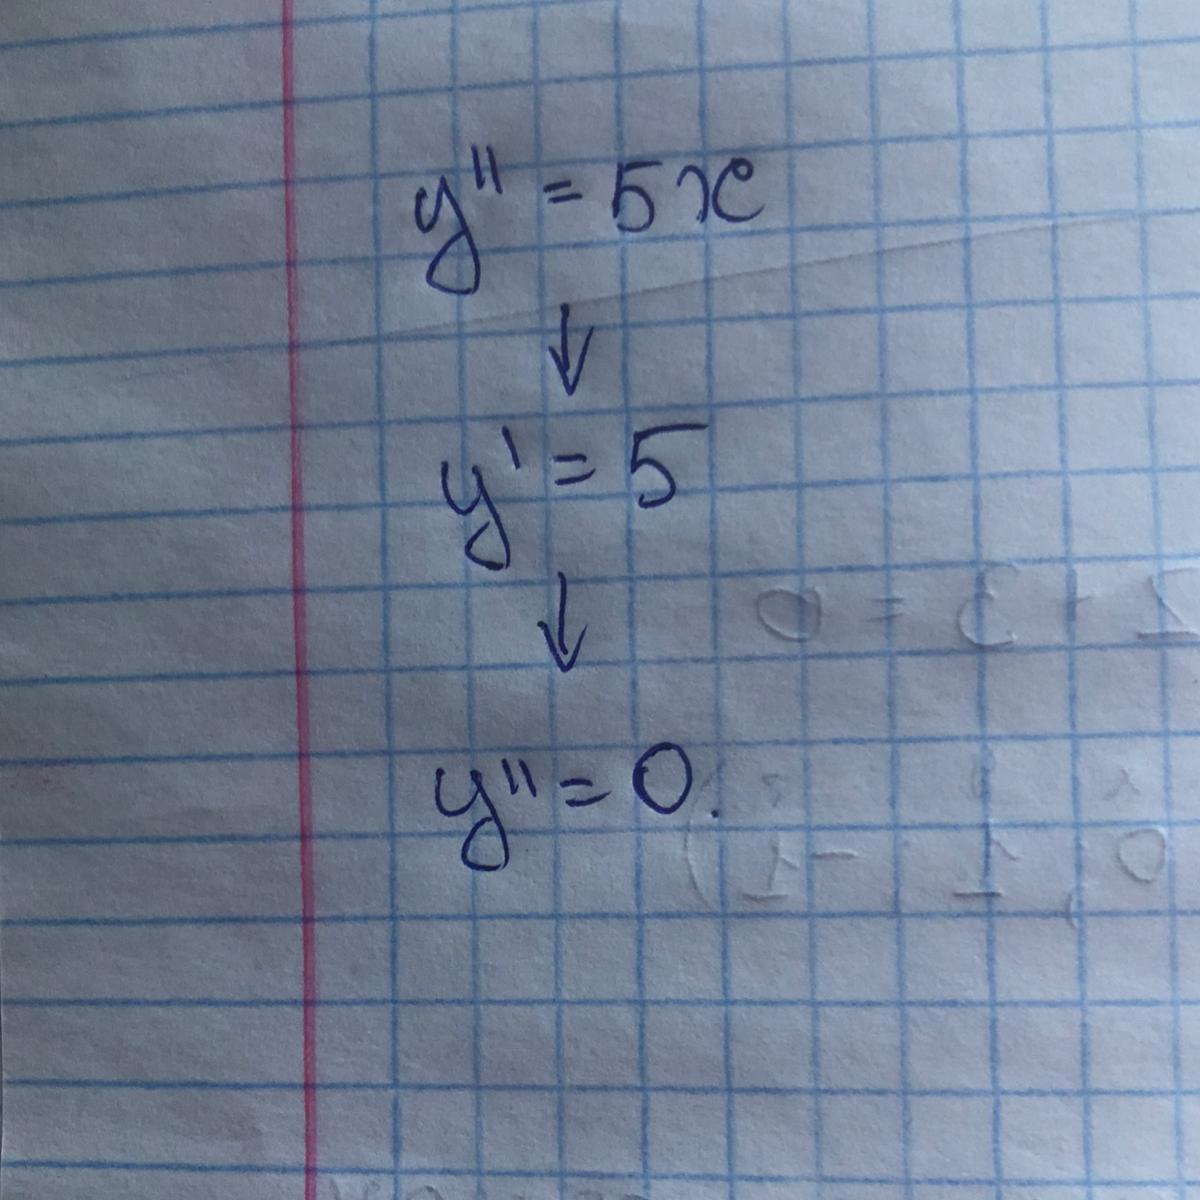 y'' = 5x
↓
y' = 5
↓
y'' = 0.